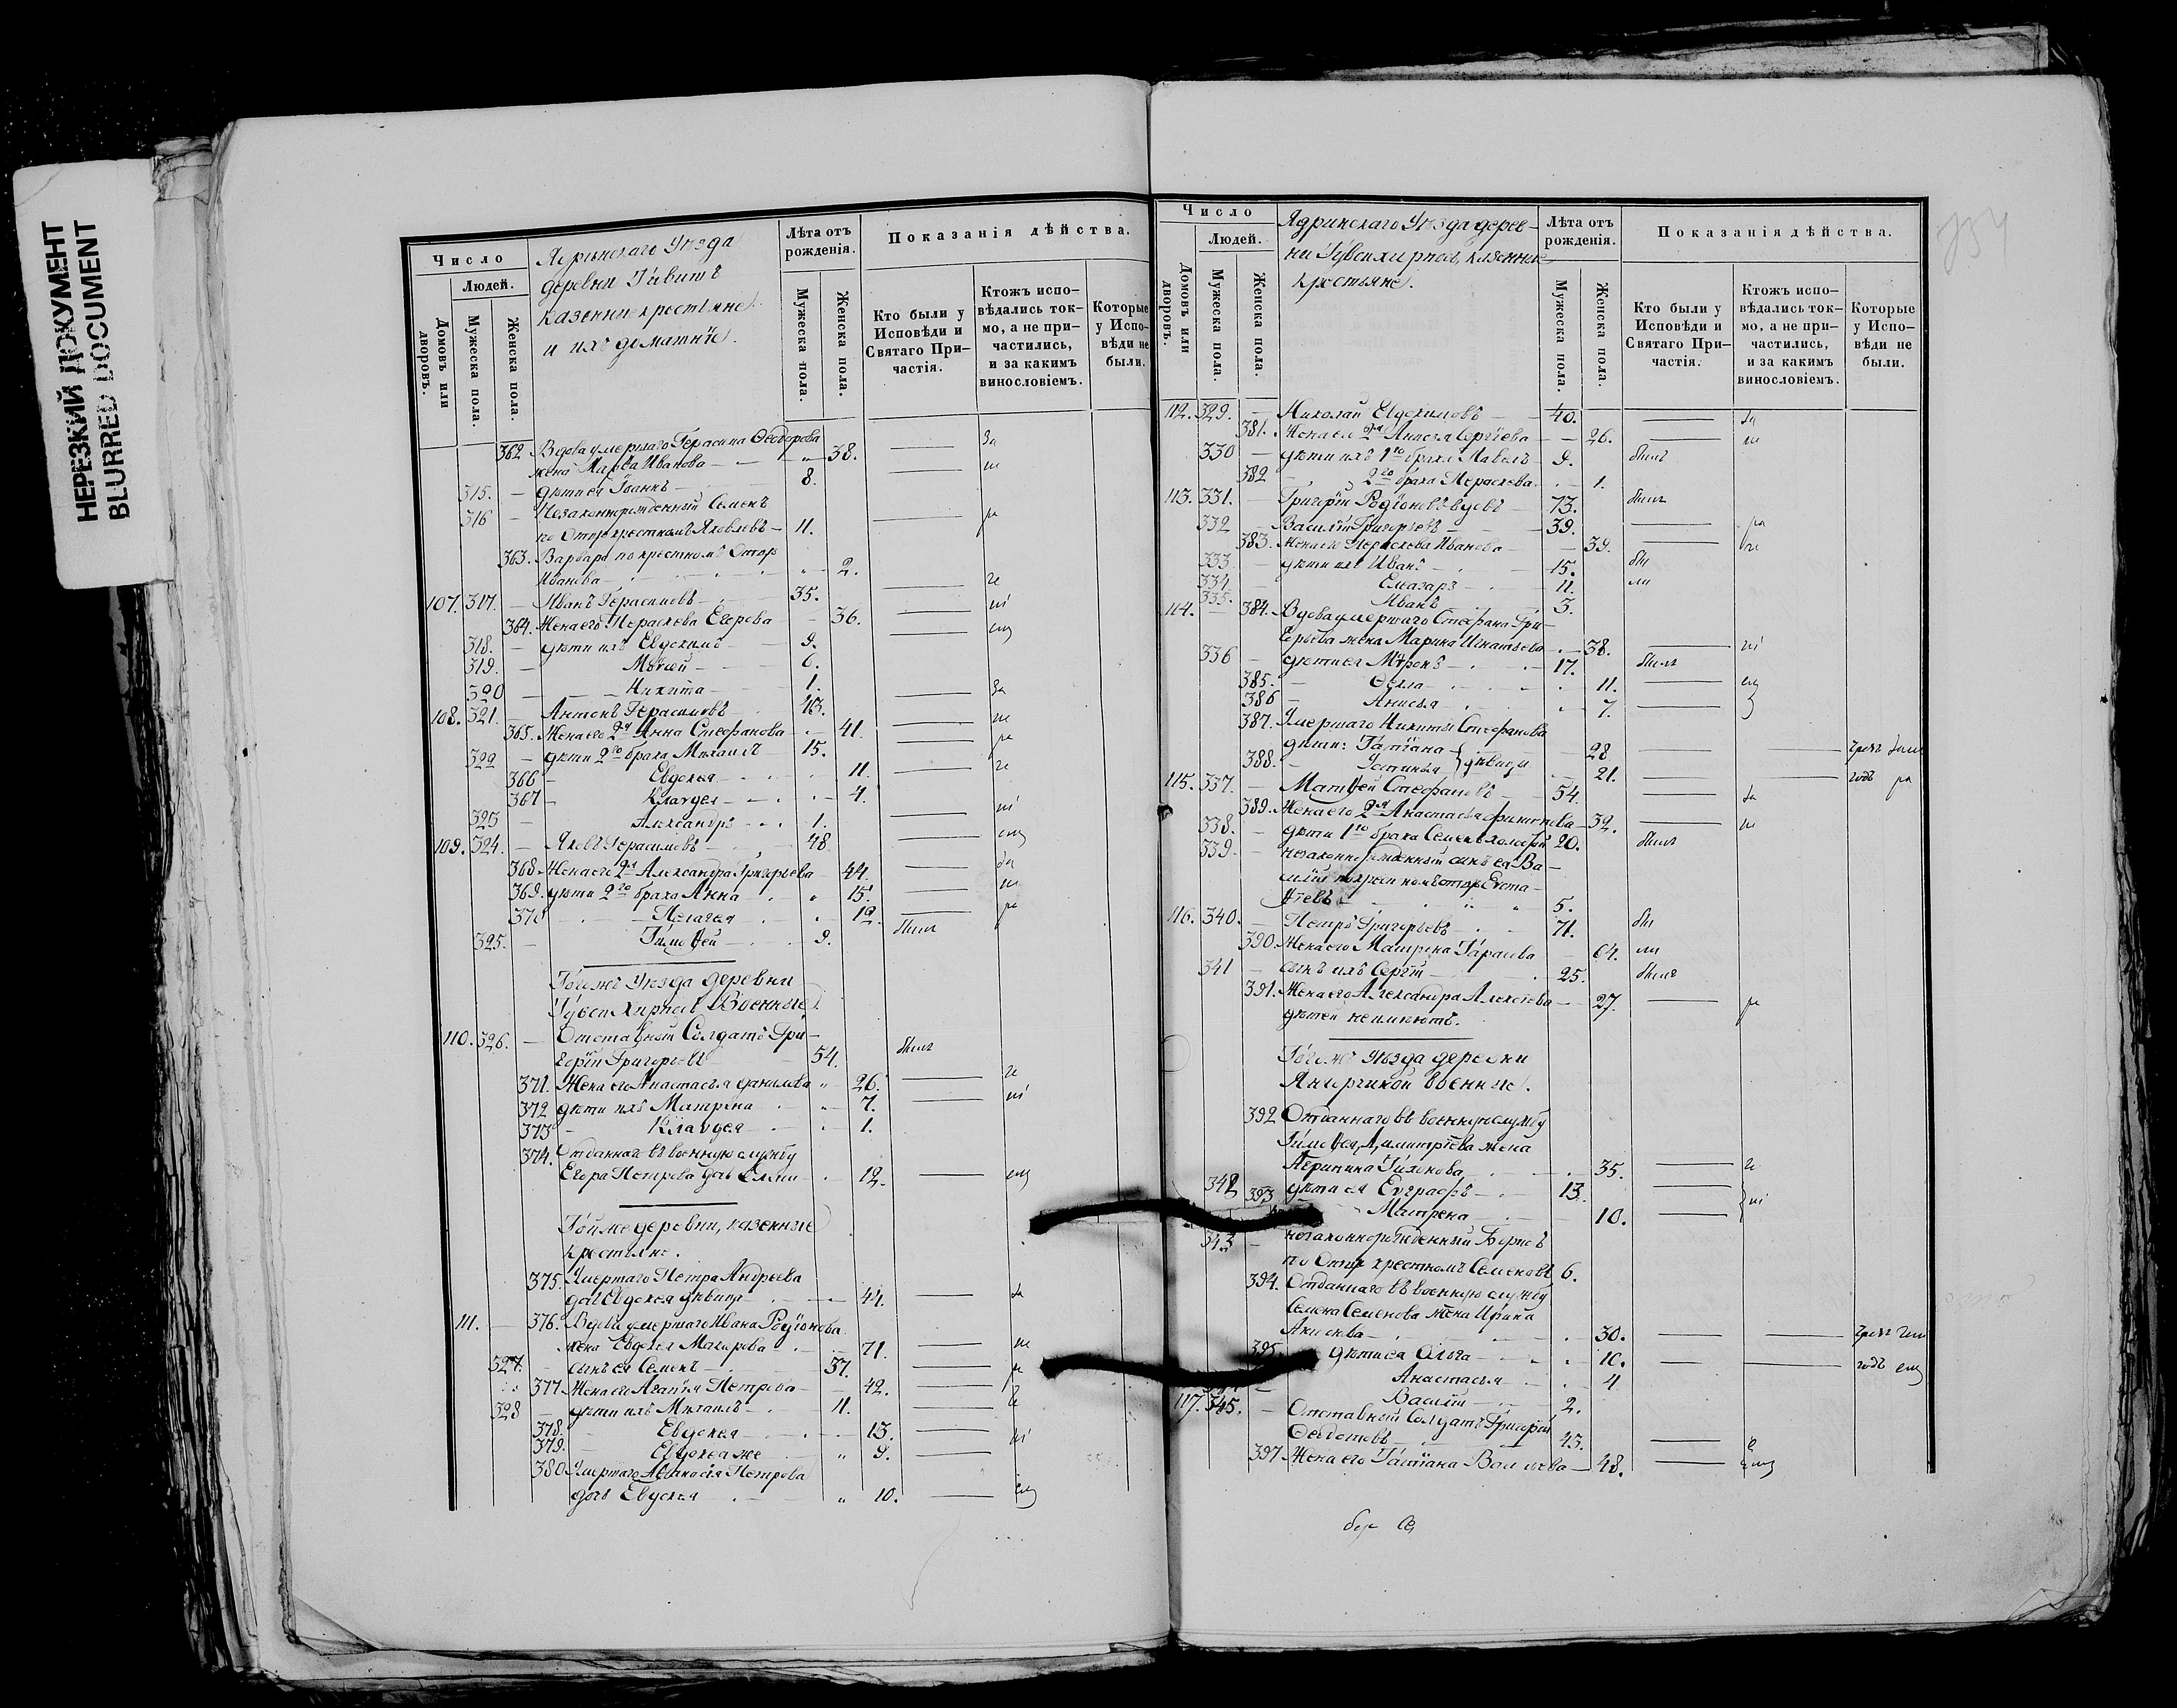 НЕРЕЗКИЙ ДОКУМЕНТ
BLURRED DOCUMENT
Число
Людей.
Домовъ или дворовъ.
Мужеска пола.
Женска пола.
Ядринскаго Уѣзда
деревни
казенные крестьяне
и ихъ домашніе.
Лѣта отъ рожденія.
Мужеска пола.
Женска пола.
Показанія дѣйства.
Кто были у Исповѣди и Святаго При–частія.
Ктожъ испо–вѣдались ток–мо, а не при–частились, и за какимъ винословіемъ.
Которые у Испо–вѣди не были.
362 Вдова умершаго Герасима Ѳеодорова
жена Марѳа Иванова 38.
315. дѣти ея Іоаннъ 8.
316 Незаконнорожденный Семенъ
по Отцѣ крестномъ Яковлевъ 11.
363. Варвара по крестномъ Отцѣ
Иванова 2.
107. 317. Иванъ Герасимовъ 35.
364. Жена его Параскева Егорова 36.
318. дѣти ихъ Евдокимъ 9.
319. Моѵсей 6.
320 Никита 1.
108. 321. Антонъ Герасимовъ 43.
365. Жена его 2я Анна Стефанова 41.
322 дѣти 2го брака Михаилъ 15.
366 Евдокія 11.
367 Клавдія 4.
323 Александръ 1.
109. 324. Яковъ Герасимовъ 48.
368 Жена его 2я Александра Григорьева 44.
369. дѣти 2го брака Анна 15.
370 Пелагея 12.
325. Тимоѳей 9. былъ
Тогожъ Уѣзда деревни
Военные
110. 326. Отставный Солдатъ Гри–
горій Григорьевъ 54. былъ
371. Жена его Анастасія Данилова 26.
372 дѣти ихъ Матрена 7.
373 Клавдія 1.
374. Отданнаго въ военную службу
Егора Петрова дочь Елена 12.
Той же деревни, казенные
крестьяне.
375. Умершаго Петра Андреева
дочь Евдокія дѣвица 44.
111. 376. Вдова умершаго Ивана Родіонова
жена Евдокія Макарова 71.
327. сынъ ея Семенъ 37.
377. Жена его Агапія Петрова 42.
328 дѣти ихъ Михаилъ 11.
378. Евдокія 13.
379. Евдокія же 9.
380 Умершаго Аѳанасія Петрова
дочь Евдокія 10.
Число
Людей.
Домовъ или дворовъ.
Мужеска пола.
Женска пола.
Ядринскаго Уѣзда дерев–
ни казенные
крестьяне.
Лѣта отъ рожденія.
Мужеска пола.
Женска пола.
Показанія дѣйства.
Кто были у Исповѣди и Святаго При–частія.
Ктожъ испо–вѣдались ток–мо, а не при–частились, и за какимъ винословіемъ.
Которые у Испо–вѣди не были.
112. 329. Николай Евдокимовъ 40.
381. Жена его 2я Анисія Сергіева 26.
330 дѣти ихъ 1го брака Павелъ 9. былъ
382 2го брака Параскева 1.
113. 331. Григорій Родіоновъ вдовъ 73. былъ
332 Василій Григорьевъ 39.
383. Жена его Параскева Иванова 39.
333 дѣти ихъ Иванъ 15. бы
334 Елеазаръ 11. ли
335. Иванъ 3.
114. 384. Вдова умершаго Стефана Гри–
горьева жена Марина Игнатьева 38.
336 дѣти ея Миронъ 17. былъ
385. Ѳекла 11.
386 Анисія 7.
387. Умершаго Никиты Стефанова
дѣти: Татіана 28
388. Устинья } дѣвицы 21.
115. 337. Матѳей Стефановъ 54.
389. Жена его 2я Анастасія Филипова 32.
338. дѣти 1го брака Семенъ холостъ 20. былъ
339 незаконнорожденный сынъ ея Ва–
силій по крестномъ отцѣ Евста–
ѳіевъ 5.
116. 340. Петръ Григорьевъ 71. бы
390. Жена его Матрена Тарасова 64. ли
341 сынъ ихъ Сергій 25. былъ
391. Жена его Александра Алексіева 27.
дѣтей неимѣютъ.
Тогожъ Уѣзда деревни
военные.
392 Отданнаго въ военную службу
Тимоѳея Димитріева жена
Агрипина Тихонова 35.
342 дѣти ея Евграфъ 13.
393 Матрена 10.
343 незаконнорожденный Борисъ
по Отцѣ крестномъ Семеновъ 6.
394. Отданнаго въ военную службу
Семена Семенова жена Ирина
30.
395. дѣти ея Ольга 10.
Анастасія 4
Василій 2.
117. 345. Отставный Солдатъ Григорій
Ѳедотовъ 43.
397 Жена его Татіана Васильева 48.